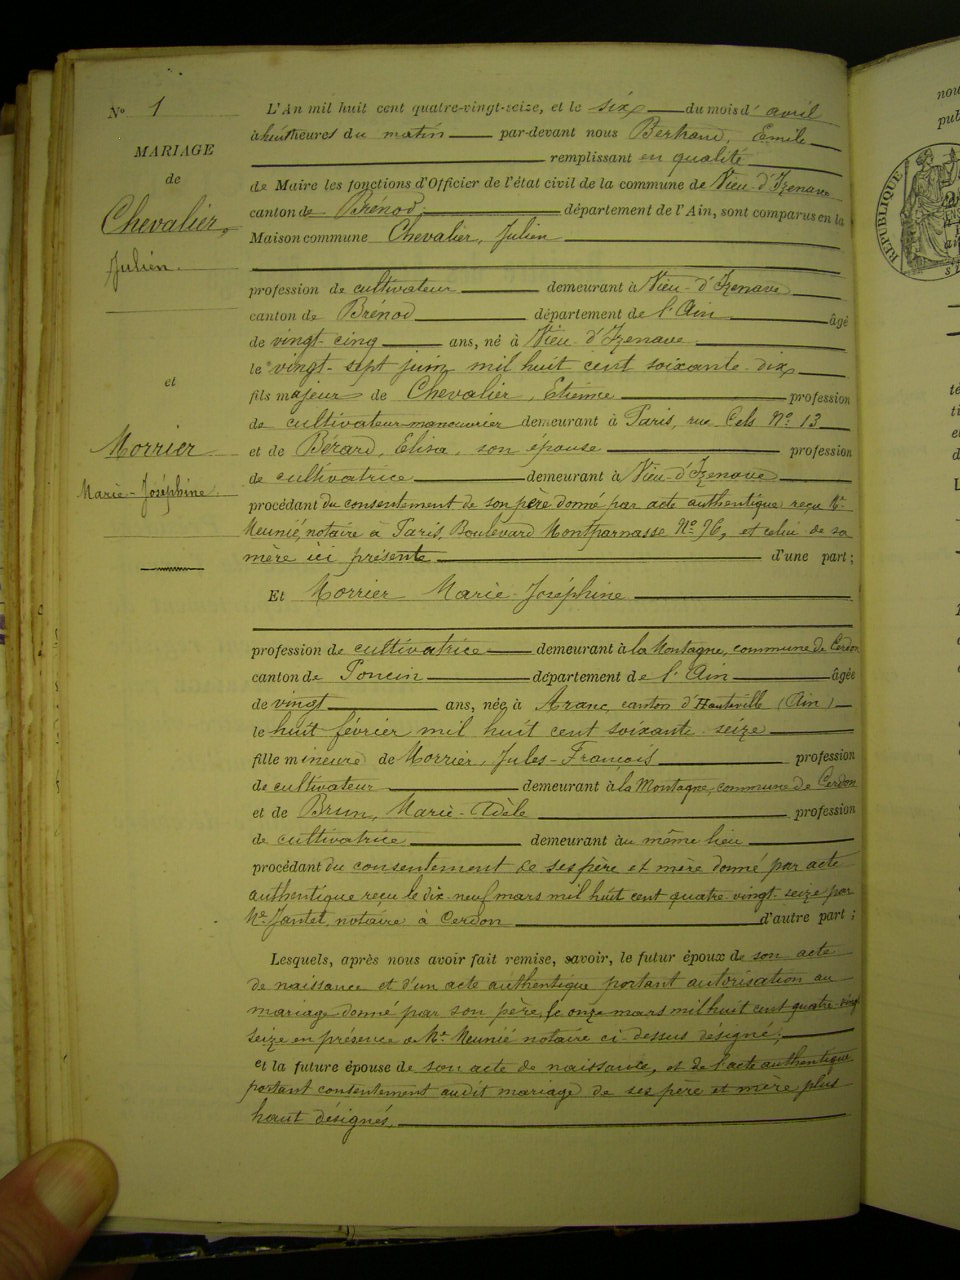 Nº 1
MARIAGE
de
Chevalier,
Julien.
et
Morrier
Marie-Joséphine.
L'An mil huit cent quatre-vingt-seize, et le six du mois d'avril
à huit heures du matin par-devant nous Berhaud, Emile
remplissant en qualité
de Maire les fonctions d'Officier de l'état civil de la commune de Vieu-d'Izenave
canton de Brénod, département de l'Ain, sont comparus en la
Maison commune Chevalier, Julien
profession de cultivateur demeurant à Vieu-d'Izenave
canton de Brénod département de l'Ain âgé
de vingt-cinq ans, né à Vieu-d'Izenave
le vingt-sept juin mil huit cent soixante-dix
fils majeur de Chevalier, Etienne profession
de cultivateur-manouvrier demeurant à Paris, rue Cels Nº 13
et de Bérard, Elisa, son épouse profession
de cultivatrice demeurant à Vieu-d'Izenave
procédant du consentement de son père donné par acte authentique reçu Me
Meunié, notaire à Paris, Boulevard Montparnasse Nº 76, et celui de sa
mère ici présente d'une part;
Et Morrier Marie-Joséphine
profession de cultivatrice demeurant à la Montagne, commune de Cerdon
canton de Poncin département de l'Ain âgée
de vingt ans, née à Aranc, canton d'Hauteville (Ain)
le huit février mil huit cent soixante-seize
fille mineure de Morrier, Jules-François profession
de cultivateur demeurant à la Montagne, commune de Cerdon
et de Brun, Marie-Adèle profession
de cultivatrice demeurant au même lieu
procédant du consentement de ses père et mère donné par acte
authentique reçu le dix-neuf mars mil huit cent quatre vingt-seize par
Me Jantet, notaire à Cerdon d'autre part;
Lesquels, après nous avoir fait remise, savoir, le futur époux de son acte
de naissance et d'un acte authentique portant autorisation au
mariage donné par son père, le onze mars mil huit cent quatre-vingt
seize en présence de Me Meunié notaire ci-dessus désigné;
et la future épouse de son acte de naissance, et de l'acte authentique
portant consentement au dit mariage de ses père et mère plus
haut désignés.
nou
pub
RÉPUBLIQUE